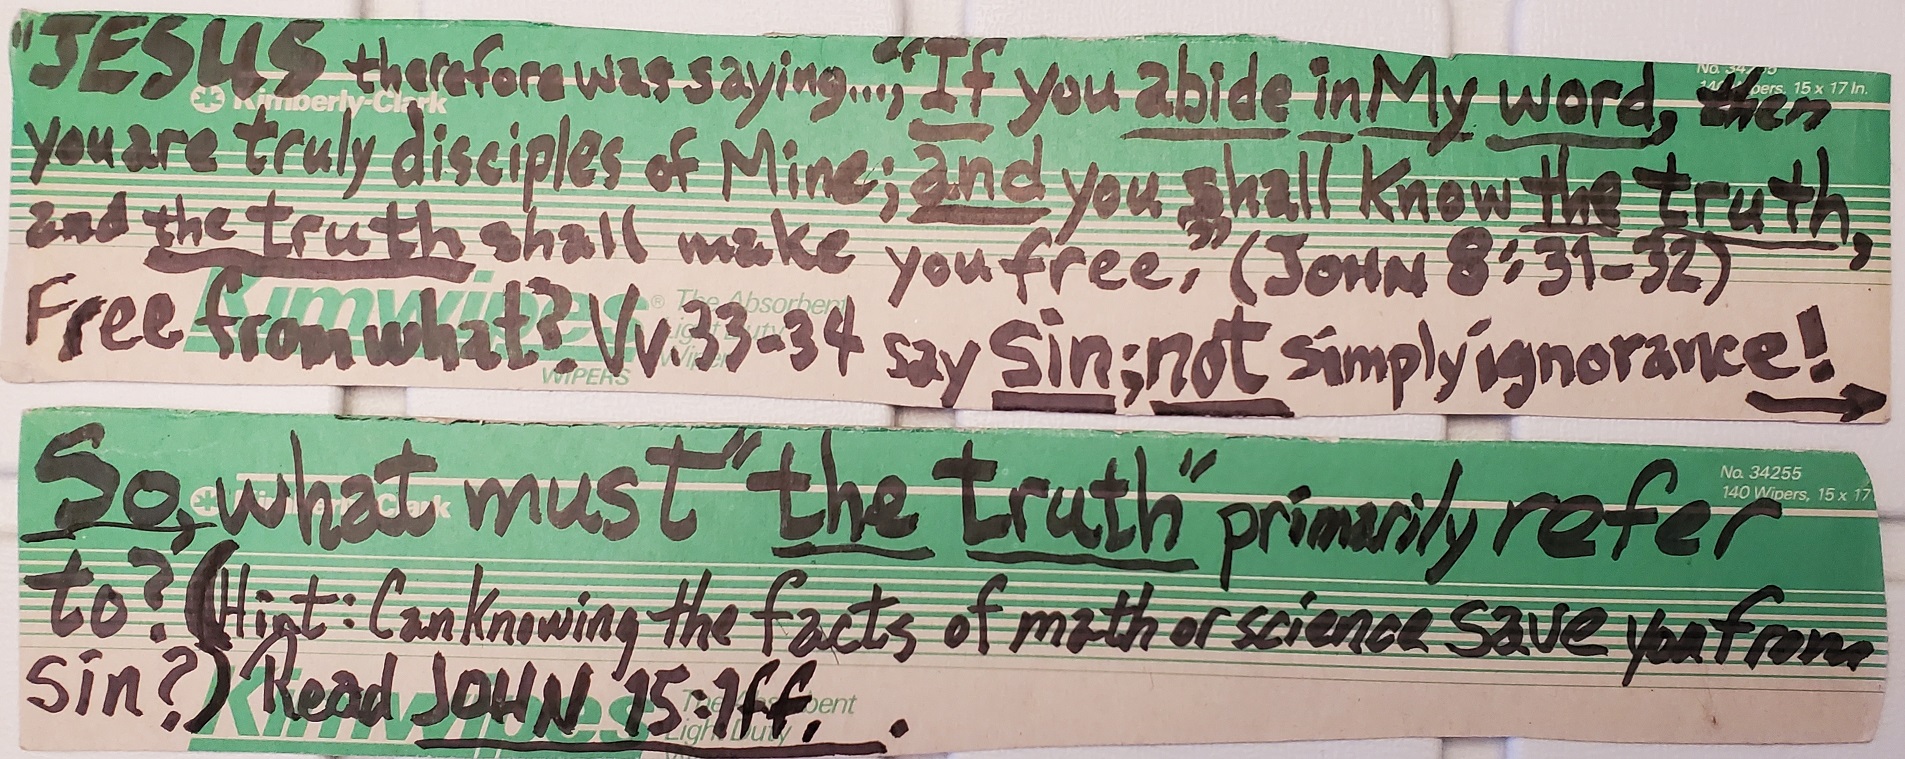 "JESUS therefore was saying..., "If you abide in My word, then
you are truly disciples of Mine; and you shall know the truth,
and the truth shall make you free," (JOHN 8:31-32)
Free from what? Vv. 33-34 say sin; not simply ignorance!
Kimberly-Clark
No. 34255
140 Wipers, 15 x 17 In.
Kimwipes® The Absorbent
Light Duty
Wiper
WIPERS
So, what must "the truth" primarily refer
to? (Hint: Can knowing the facts of math or science save you from
sin?) Read JOHN 15:1ff.
Kimberly-Clark
No. 34255
140 Wipers, 15 x 17
Kimwipes The Absorbent
Light Duty